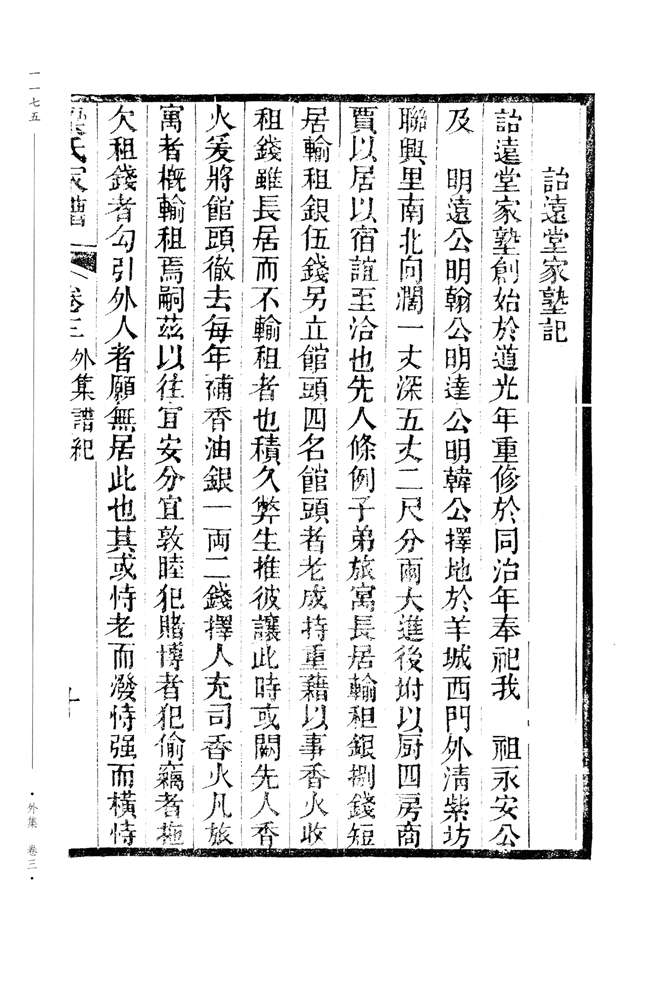 詒遠堂家塾記
詒遠堂家塾創始於道光年重修於同治年奉祀我　祖永安公
及　明遠公明翰公明達公明韓公擇地於羊城西門外清紫坊
聯興里南北向濶一丈深五丈二尺分兩大進後坿以厨四房商
賈以居以宿誼至洽也先人條例子弟旅寓長居輸租銀捌錢短
居輸租銀伍錢另立館頭四名館頭者老成持重藉以事香火收
租錢雖長居而不輸租者也積久弊生推彼讓此時或闕先人香
火爰將館頭徹去每年補香油銀一兩二錢擇人充司香火凡旅
寓者概輸租焉嗣茲以往宜安分宜敦睦犯賭博者犯偷竊者拖
欠租錢者勾引外人者願無居此也其或恃老而潑恃强而橫恃
氏家譜　卷三　外集譜紀　十
一一七五
・外集　卷三・